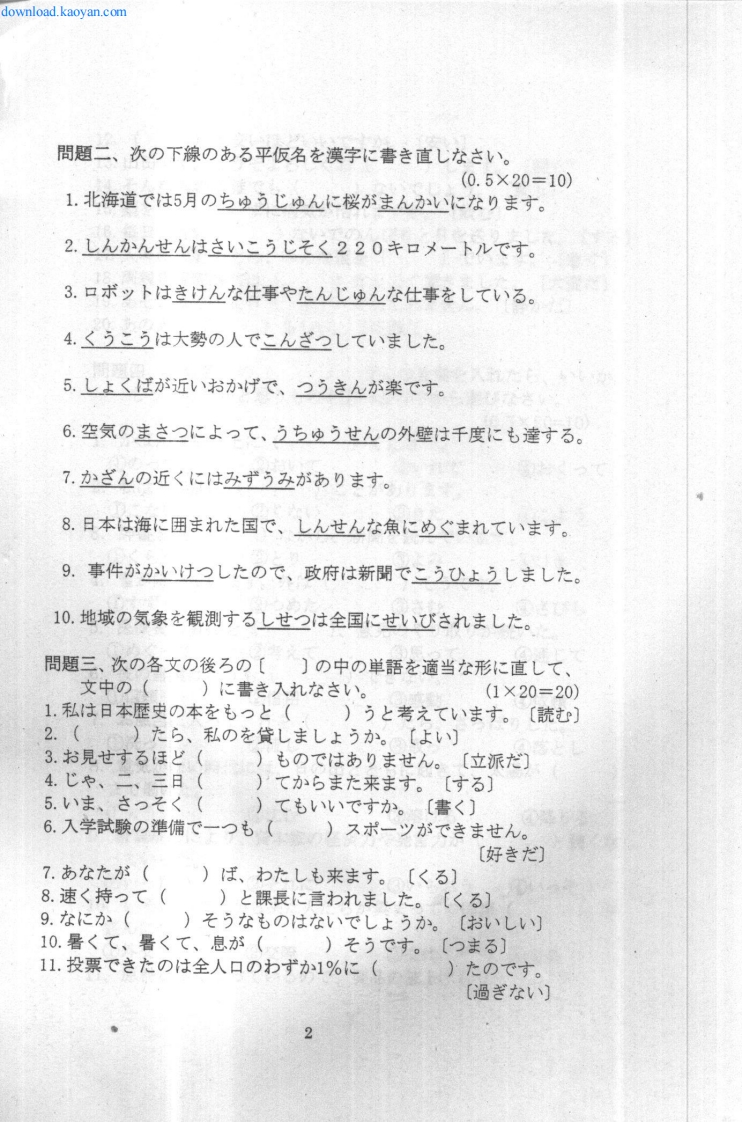 download.kaoyan.com
問題二、次の下線のある平仮名を漢字に書き直しなさい。
(0.5×20＝10)
1. 北海道では5月のちゅうじゅんに桜がまんかいになります。
2. しんかんせんはさいこうじそく２２０キロメートルです。
3. ロボットはきけんな仕事やたんじゅんな仕事をしている。
4. くうこうは大勢の人でこんざつしていました。
5. しょくばが近いおかげで、つうきんが楽です。
6. 空気のまさつによって、うちゅうせんの外壁は千度にも達する。
7. かざんの近くにはみずうみがあります。
8. 日本は海に囲まれた国で、しんせんな魚にめぐまれています。
9. 事件がかいけつしたので、政府は新聞でこうひょうしました。
10. 地域の気象を観測するしせつは全国にせいびされました。
問題三、次の各文の後ろの〔　　〕の中の単語を適当な形に直して、
文中の（　　　）に書き入れなさい。　　　　　(1×20＝20)
1. 私は日本歴史の本をもっと（　　　）うと考えています。〔読む〕
2. （　　　）たら、私のを貸しましょうか。〔よい〕
3. お見せするほど（　　　）ものではありません。〔立派だ〕
4. じゃ、二、三日（　　　）てからまた来ます。〔する〕
5. いま、さっそく（　　　）てもいいですか。〔書く〕
6. 入学試験の準備で一つも（　　　）スポーツができません。
〔好きだ〕
7. あなたが（　　　）ば、わたしも来ます。〔くる〕
8. 速く持って（　　　）と課長に言われました。〔くる〕
9. なにか（　　　）そうなものはないでしょうか。〔おいしい〕
10. 暑くて、暑くて、息が（　　　）そうです。〔つまる〕
11. 投票できたのは全人口のわずか1％に（　　　）たのです。
〔過ぎない〕
2